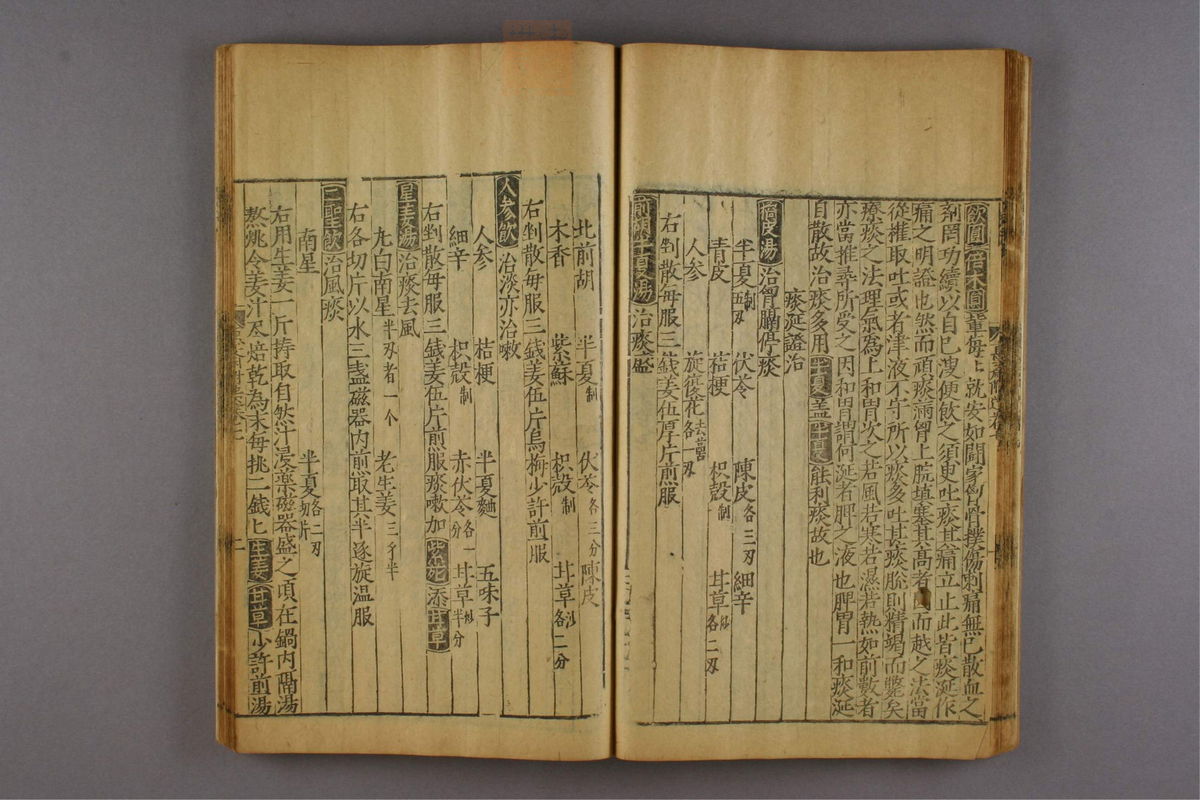 飲圓倍术圓輩每每就安如鬬家骨撲傷刺痛無巳散血之
剤罔功續以自巳溲便飲之須㬰吐痰其痛立止此皆痰涎作
痛之明證也然而頑痰滿胷上脘填塞其高者因而越之法當
從權取吐或者津液不守所以痰多吐甚痰脫則精竭而斃矣
療痰之法理氣為上和胃次之若風若寒若濕若熱如前數者
亦當推尋所受之因和胃謂何涎者脾之液也脾胃一和痰涎
自散故治痰多用半夏盖半夏能利痰故也
痰涎證治
倍皮湯治胷膈停痰
半夏制五刄 伏苓 陳皮各三刄 細辛
青皮 桔梗 枳殻制 甘草各二刄
人参 旋復花各一刄
右剉散每服三錢姜伍厚片煎服
前胡半夏湯治痰盛
北前胡 半夏制 伏苓各三分 陳皮
木香 紫蘇 枳殻制 甘草各二分
右剉散每服三錢姜伍片烏梅少許煎服
人参飲治痰亦治嗽
人参 桔梗 半夏麯 五味子
細辛 枳殻制 赤伏苓各一分 甘草半分
右剉散每服三錢姜伍片煎服痰嗽加紫菀添甘草
星姜湯治痰去風
九白南星半刄者一个 老生姜三寸半
右各切片以水三盞磁器内煎取其半逐旋温服
二聖飲治風痰
南星 半夏各二刄切片
右用生姜一斤持取自然汁浸藥磁器盛之頃在鍋内隔湯
熬姚令姜汁尽焙乾為末每挑二錢匕生姜甘草少許前湯